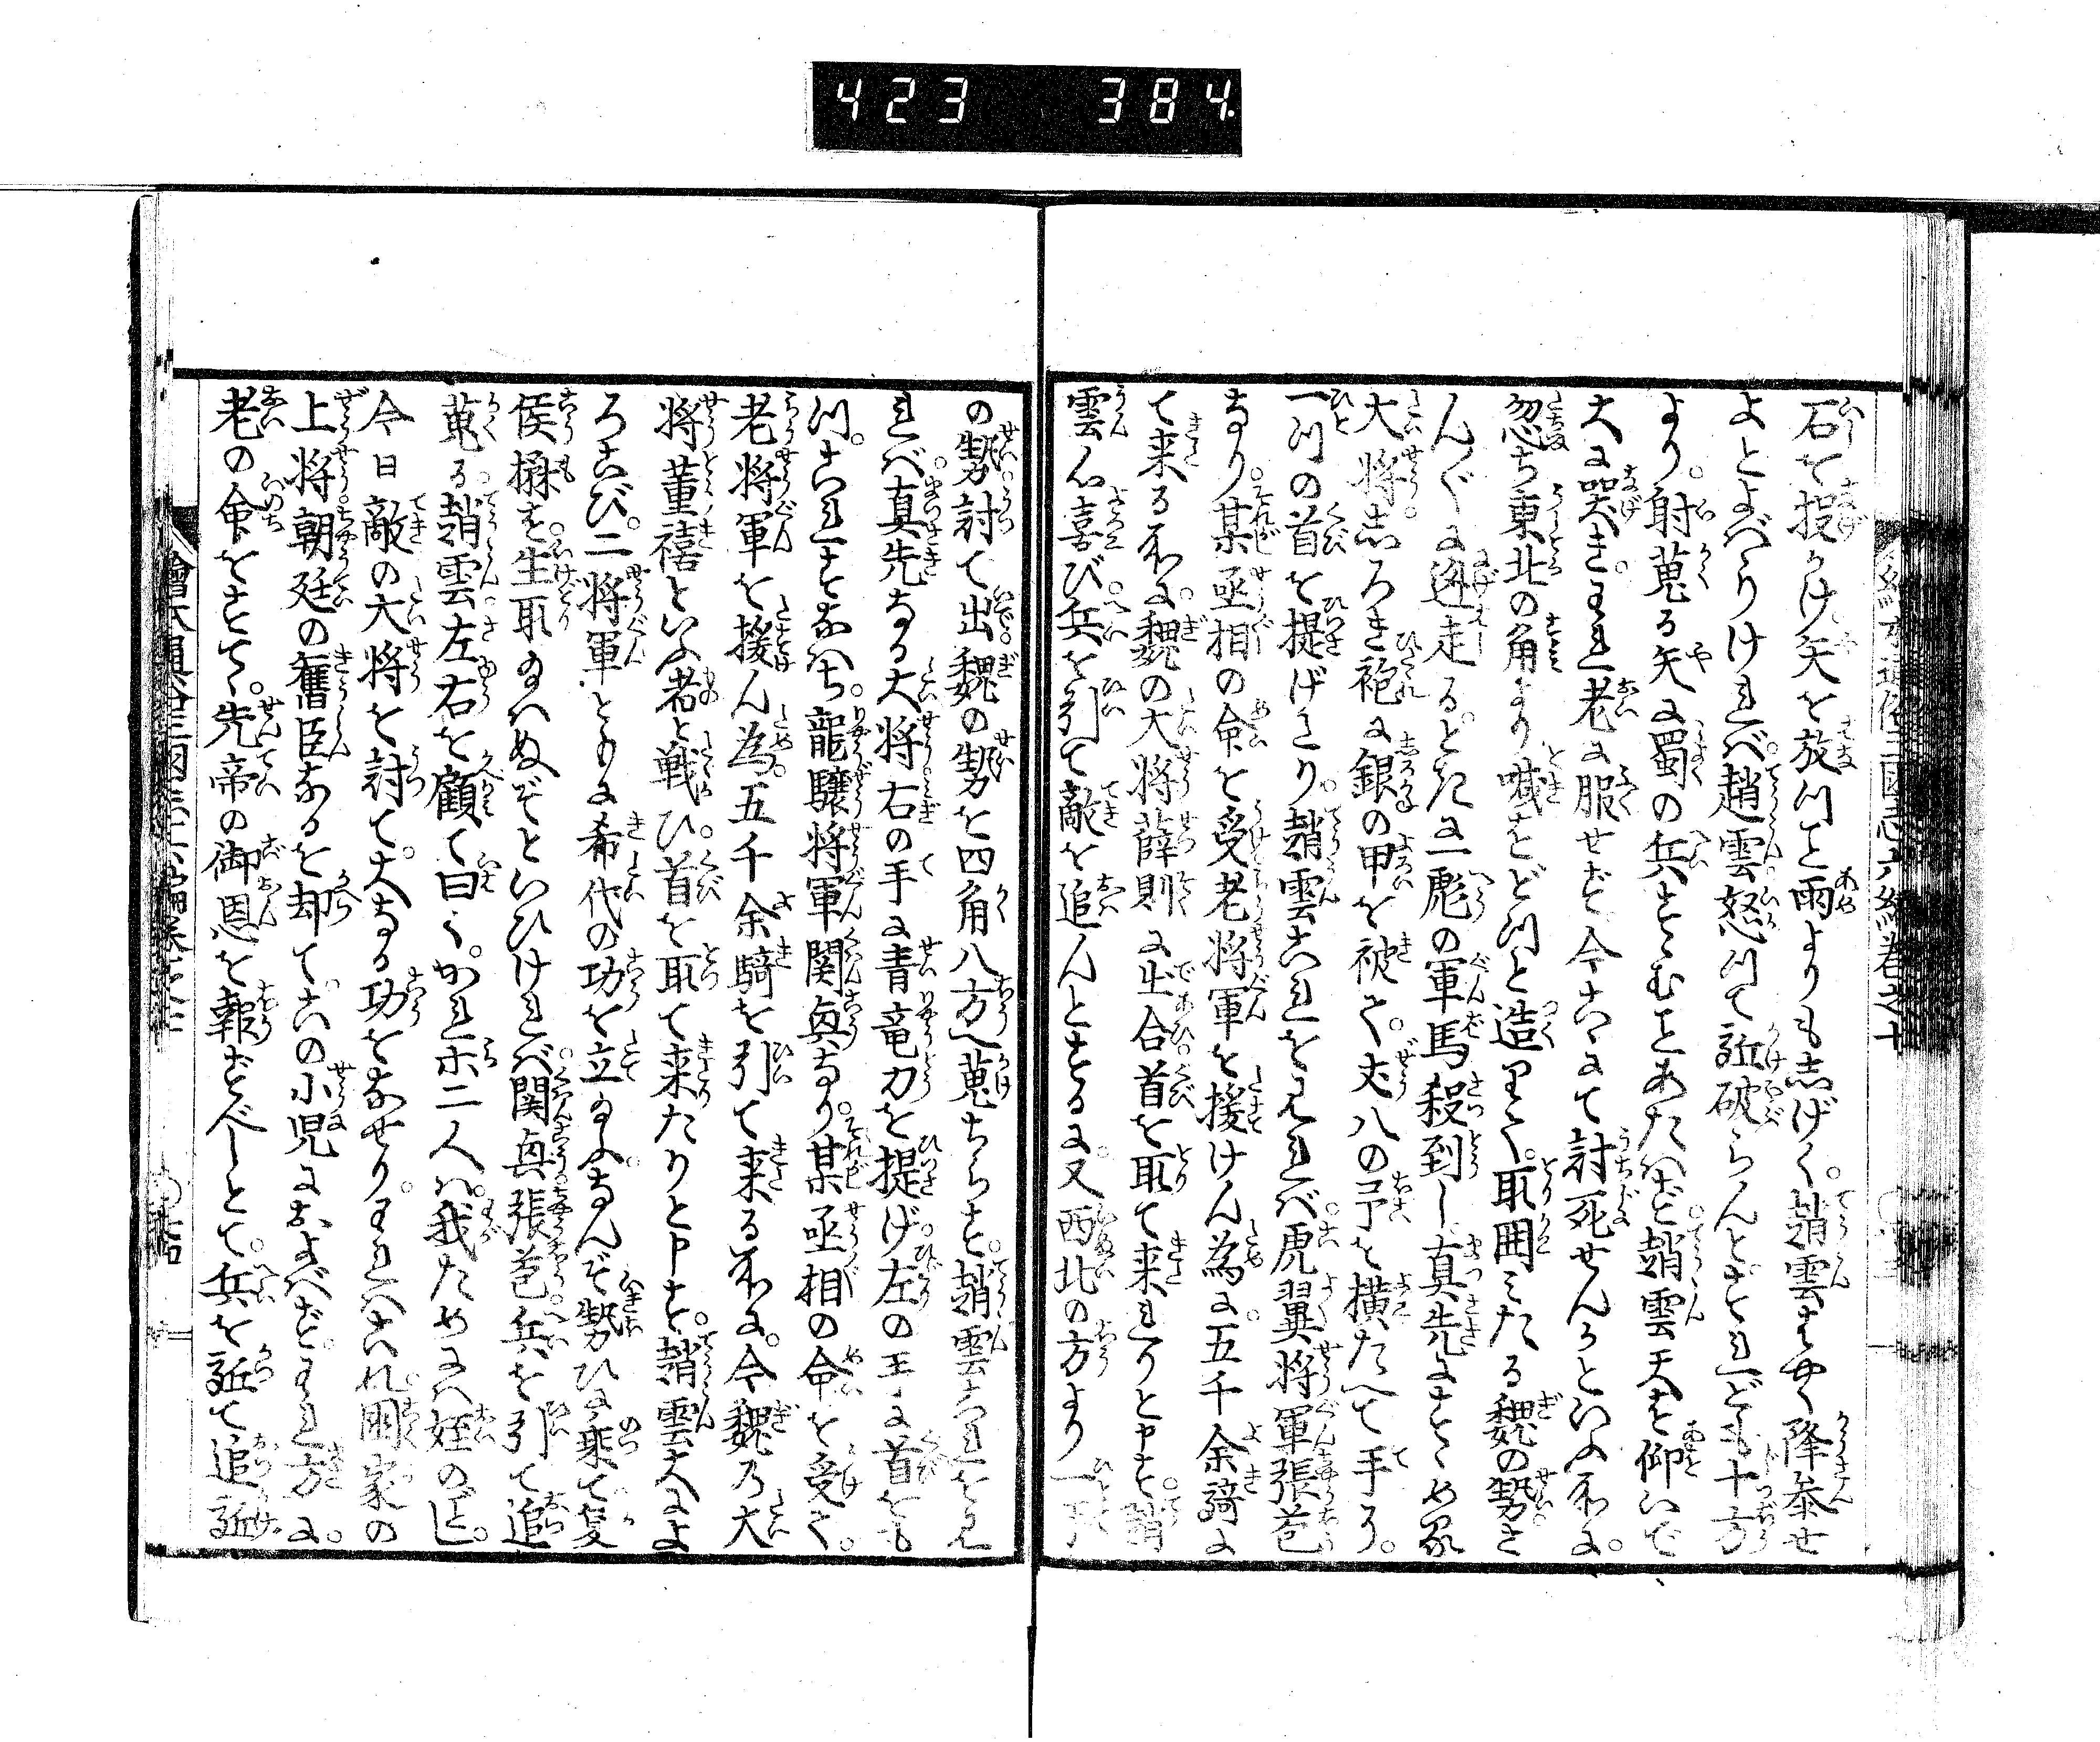 423 384
石を投かけ矢を放つこと雨よりもしげく。趙雲はやく降参せ
よとよばゝりけれバ。趙雲怒つて跑破らんとすれども十方
より。射蒐る矢に蜀の兵すゝむことあたハず。趙雲天を仰いで
大に哭き。われ老に服せず今こゝにて討死せんかといふ所に。
忽ち東北の角より喊をどつと造りて。取囲ミたる魏の勢さ
んぐに迯走る。ときに一彪の軍馬殺到し真先にすゝめ
大将しろき袍に銀の甲を被て。丈八の弓を横たへて手に。
一つの首を提げたり。趙雲これをみれバ。虎翼将軍張苞
なり。某丞相の命を受老将軍を援けん為に。五千余騎に
て来る所に。魏の大将薛則に出合首を取て来れりと申す。趙
雲心喜び兵を引て敵を追んとするに。又西北の方より一
の勢討て出。魏の勢を四角八方へ蒐ちらす。趙雲これを見
れバ真先なる大将右の手に青竜刀を提げ。左の手に首をも
つ。これすなハち。龍驤将軍関興なり。某丞相の命を受て。
老将軍を援ん為。五千余騎を引て来る所に。今魏乃大
将董禧といふ者と戦ひ。首を取て来たりと申す。趙雲大によ
ろこび。二将軍ともに希代の功を立給ふ。なんぞ勢ひに乗て夏
侯楙を生取給ハぬぞといひけれバ。関興張苞兵を引て追
蒐る。趙雲左右を顧て曰く。かれホ二人ハ。我ためにハ姪のごとし。
今日敵の大将を討て。大なる功をなせり。われハこれ。国家の
上将。朝廷の舊臣なるを却て。この小児におよばず。われ方に。
老の命をすてゝ。先帝の御恩を報ずべしとて。兵を跑て追跑